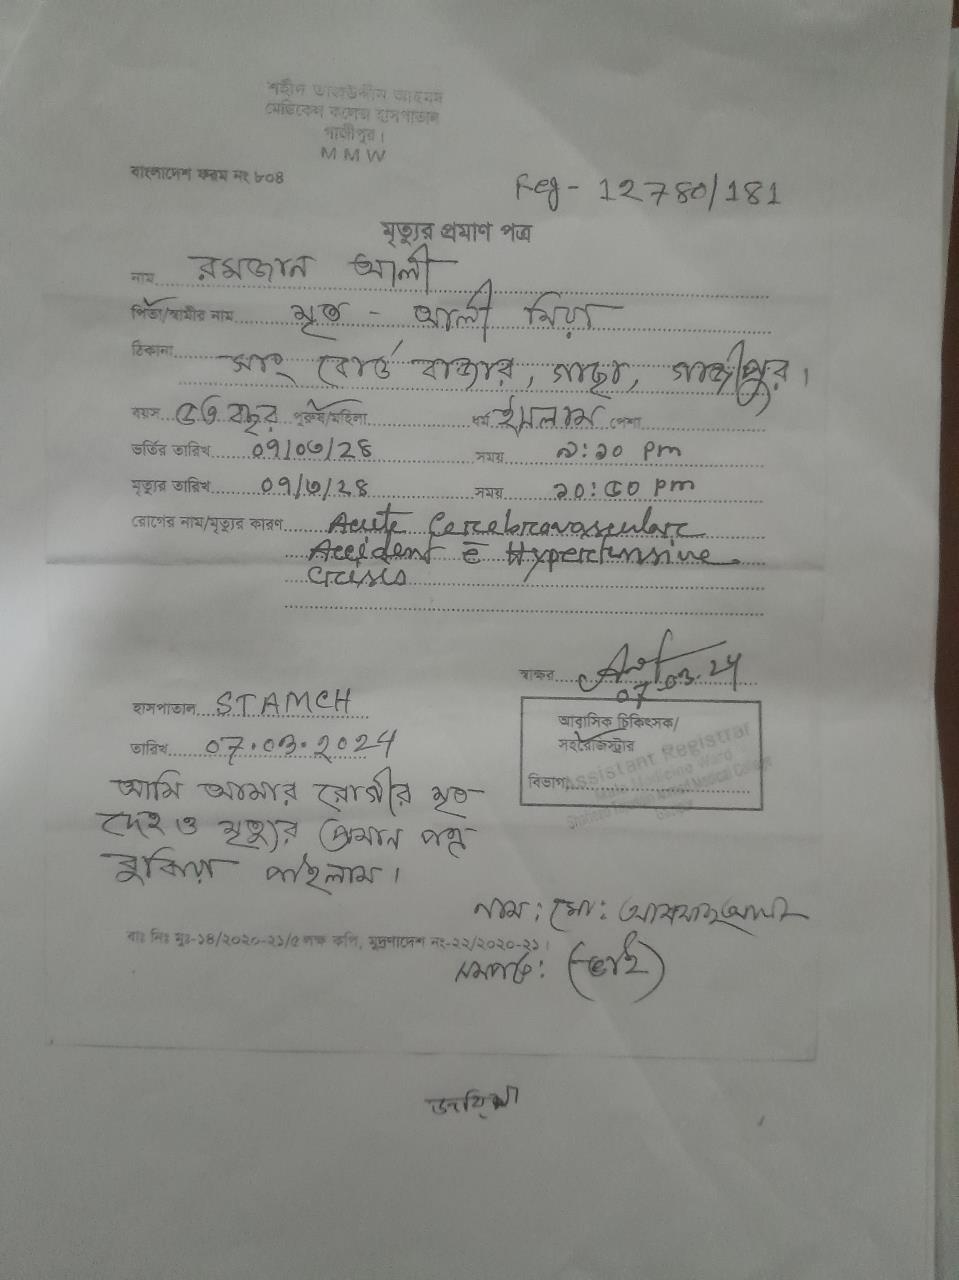 শহীদ তাজউদ্দীন আহমদ
মেডিকেল কলেজ হাসপাতাল
গাজীপুর।
MMW
বাংলাদেশ ফরম নং ৮০৪
Reg - 12780/181
মৃত্যুর প্রমাণ পত্র
নাম রমজান আলী
পিতা/স্বামীর নাম মৃত - আলী মিয়া
ঠিকানা সাং বোর্ড বাজার, গাছা, গাজীপুর।
বয়স ৫৬ বছর পুরুষ/মহিলা ধর্ম ইসলাম পেশা
ভর্তির তারিখ ০৭/০৩/২৪ সময় ৯:১০ pm
মৃত্যুর তারিখ ০৭/৩/২৪ সময় ১০:৫০ pm
রোগের নাম/মৃত্যুর কারণ Acute Cerebrovascular
Accident c̄ Hypertensive
Crisis
স্বাক্ষর 07.03.24
হাসপাতাল STAMCH
আবাসিক চিকিৎসক/
সহঃরেজিস্ট্রার
তারিখ 07.03.2024
বিভাগ
Assistant Registrar
Medicine Ward
Medical College
আমি আমার রোগীর মৃত
দেহ ও মৃত্যুর প্রমান পত্র
বুঝিয়া পাইলাম।
নাম: মো:
বাঃ নিঃ মুঃ-১৪/২০২০-২১/৫ লক্ষ কপি, মুদ্রণাদেশ নং-২২/২০২০-২১।
সম্পর্ক: (ভাই)